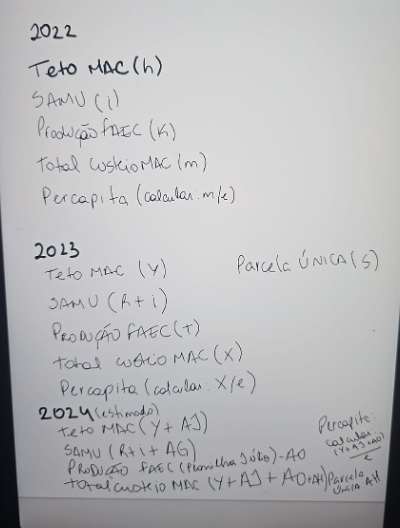 2022
Teto MAC (h)
SAMU (i)
Produção FAEC (K)
Total custeio MAC (m)
Percapita (calcular m/e)
2023
Teto MAC (Y)
Parcela ÚNICA (S)
SAMU (R+i)
PRODUÇÃO FAEC (T)
Total custeio MAC (X)
Percapita (calcular: X/e)
2024 (estimado)
Teto MAC (Y + AJ)
SAMU (R+i + AG)
PRODUÇÃO FAEC (Planilha Júlio) - AO
Total custeio MAC (Y + AJ + AO + AH) Parcela
ÚNICA AH
Percapita:
calcular:
(Y + AJ + AO)
e